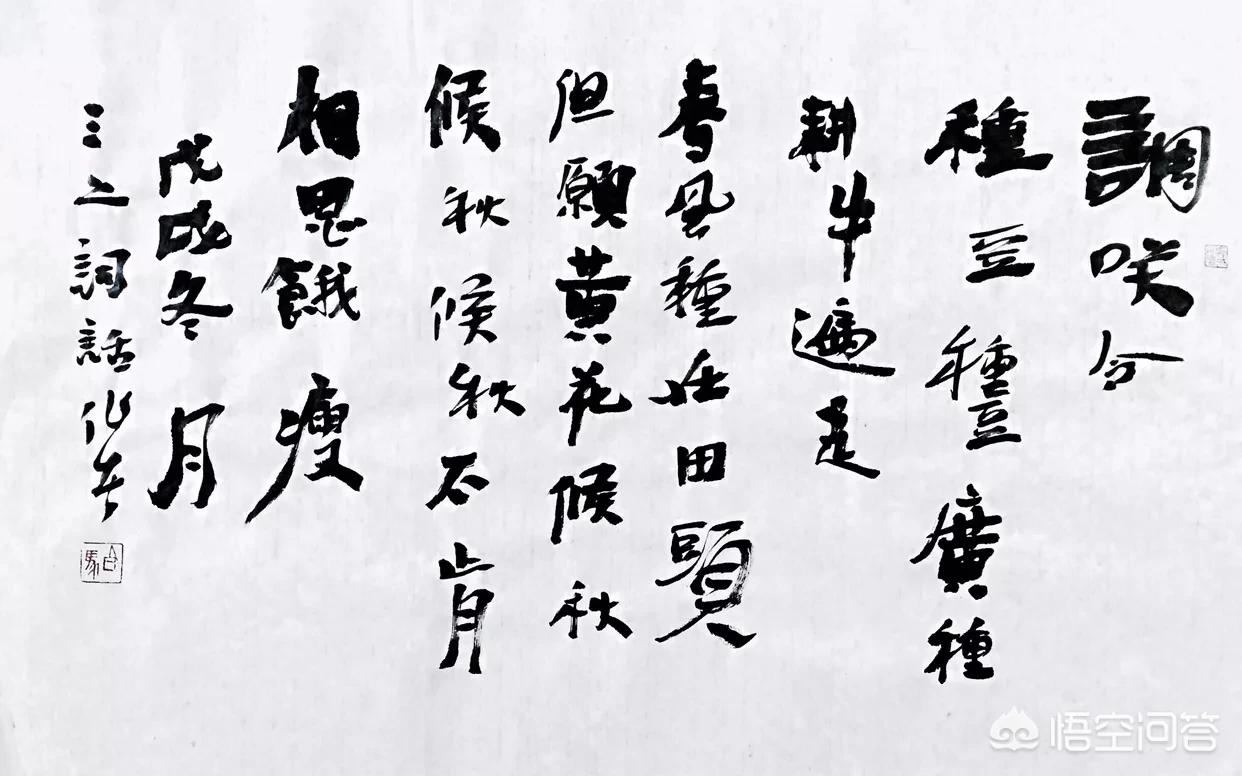 調咲令
種豆種豆廣種
耕牛遍走
春风種在田頭
但願黄花候秋
候秋候秋不肯
相思餓瘦
戊戌冬月
三之詞話作書
白馬
悟空问答